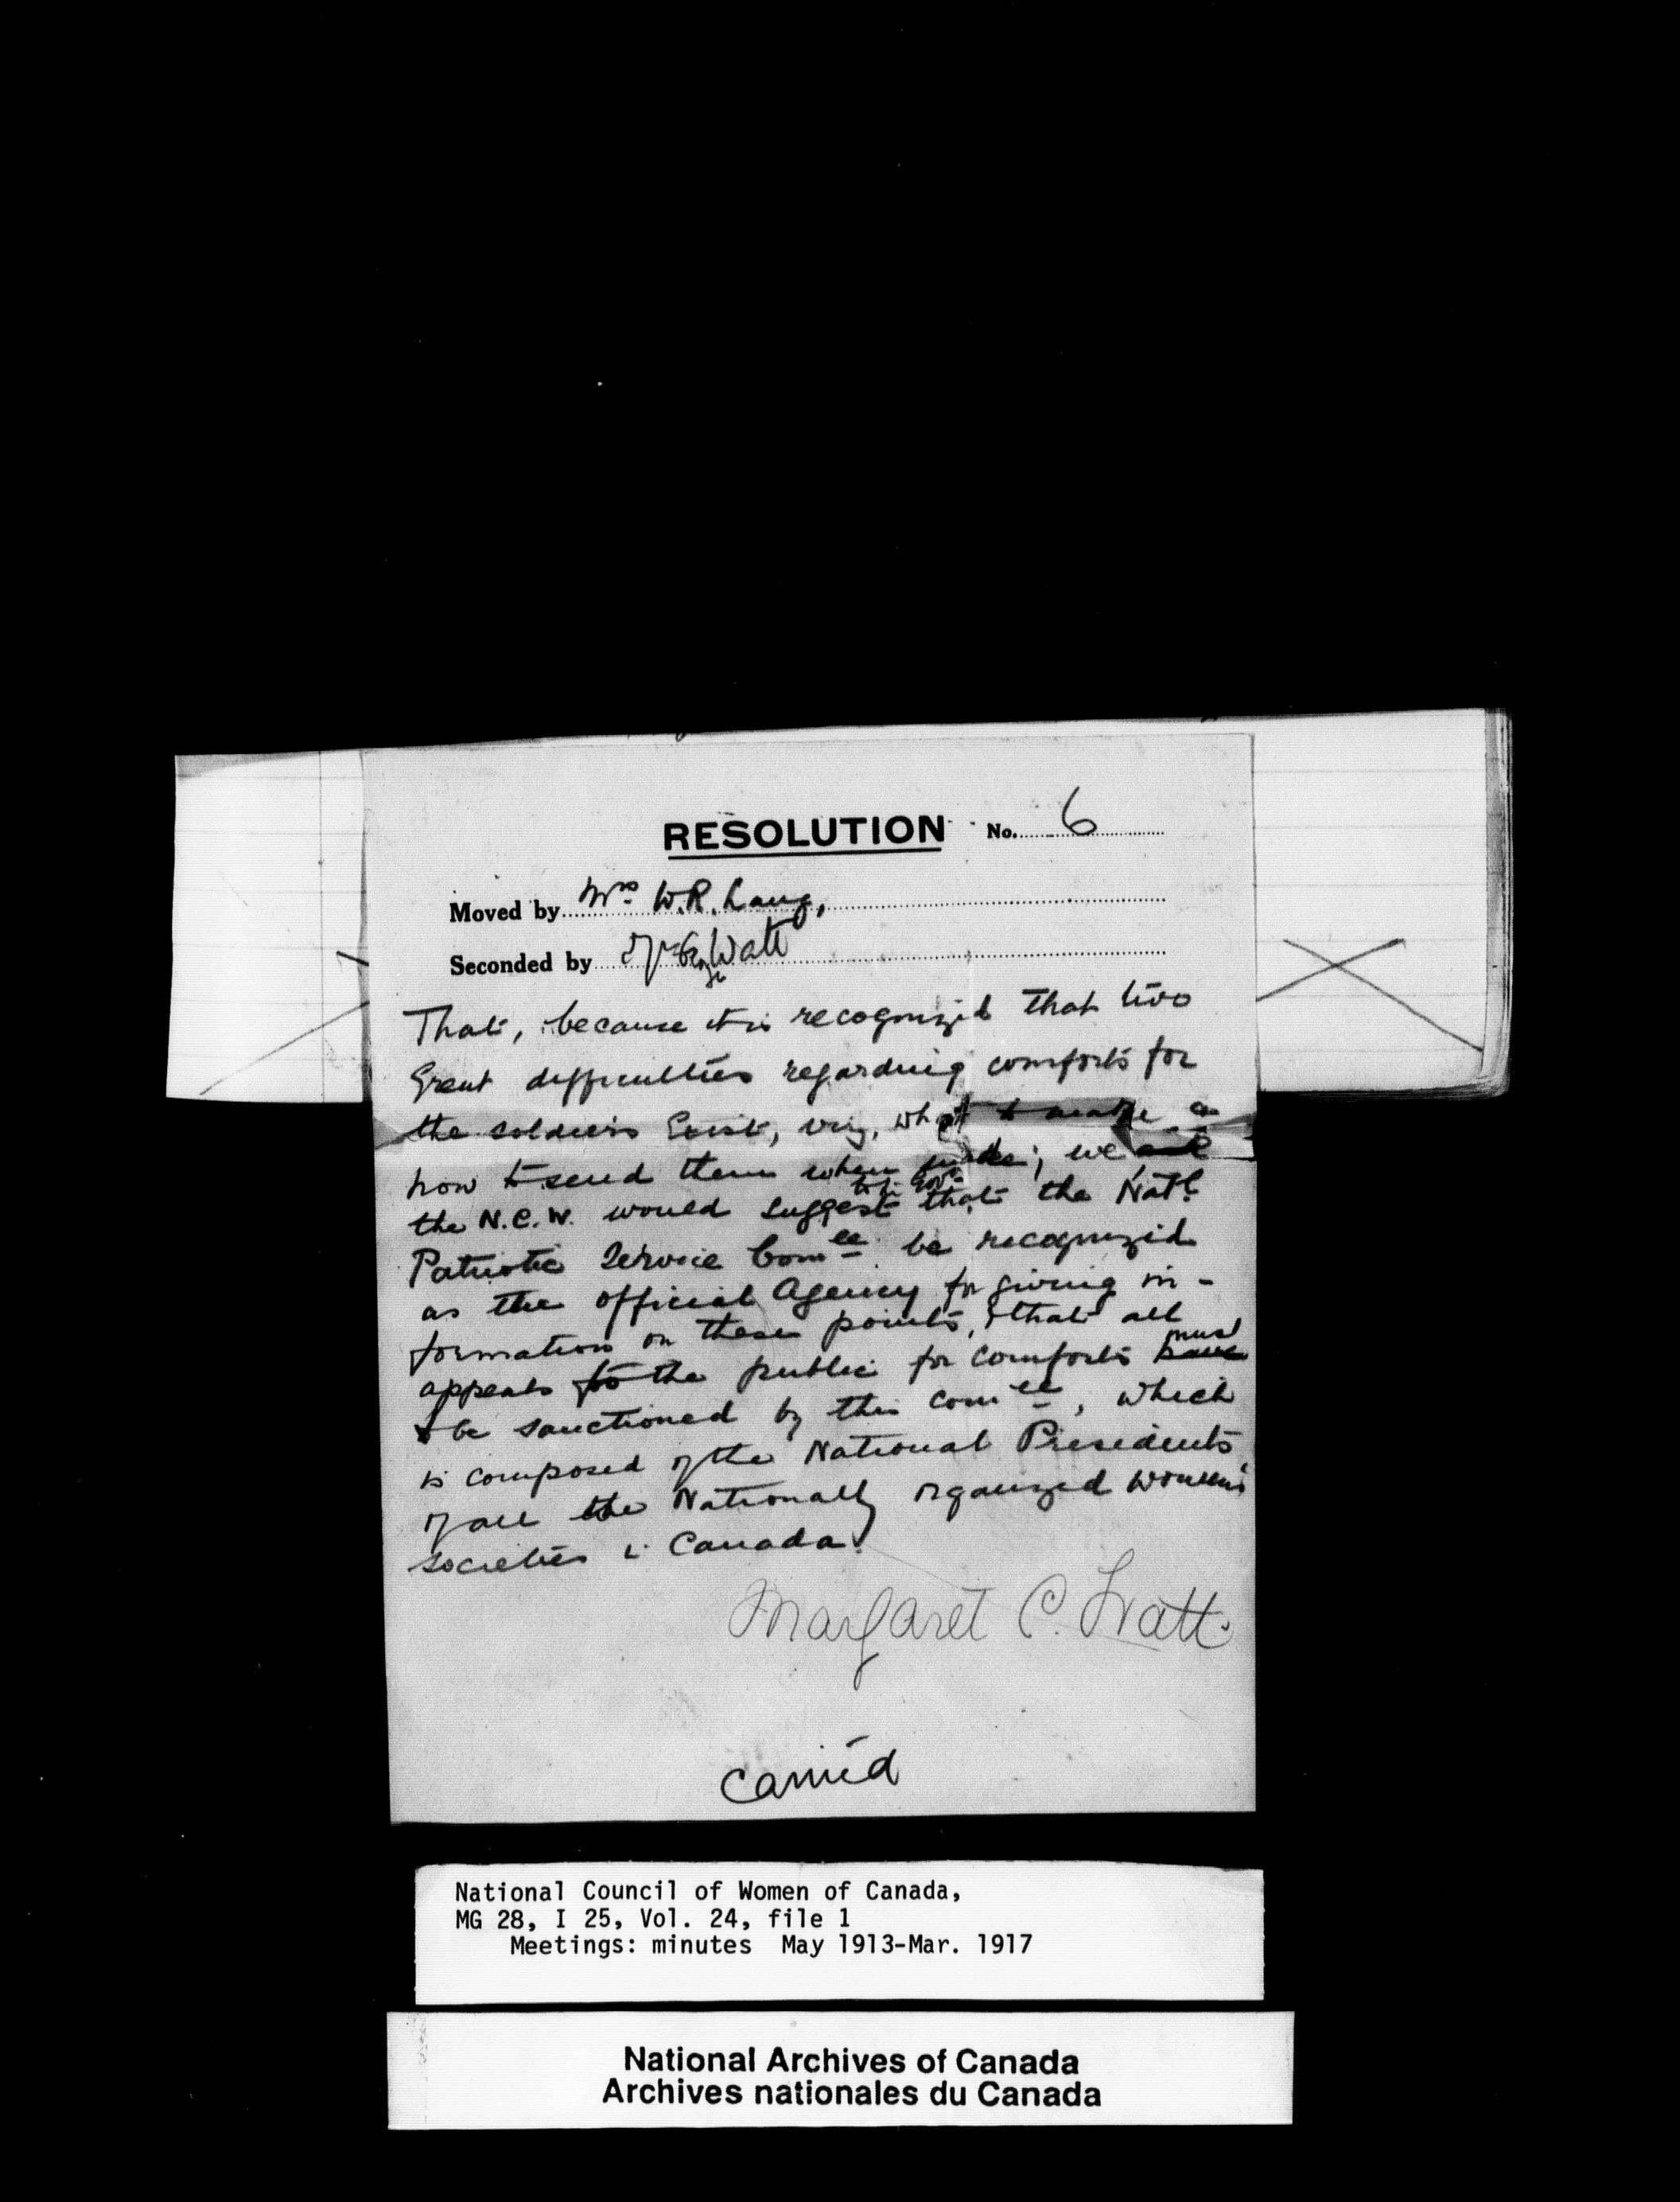 RESOLUTION No. 6
Moved by Mrs. W. R. Lang,
Seconded by Mrs Geo Watt
That, because it is recognized that two
Great difficulties regarding comforts for
the soldiers Exist, viz, what to make &
how to send them when made; we
the N.C.W. would suggest to the Govt that the Natl.
Patriotic Service Comee be recognized
as the official Agency for giving in-
formation on these points, & that all
appeals to the public for comforts must
be sanctioned by this comee, which
is composed of the National Presidents
of all the Nationally organized Women's
societies in Canada.
Margaret C. Watt.
Carried
National Council of Women of Canada,
MG 28, I 25, Vol. 24, file 1
Meetings: minutes May 1913-Mar. 1917
National Archives of Canada
Archives nationales du Canada